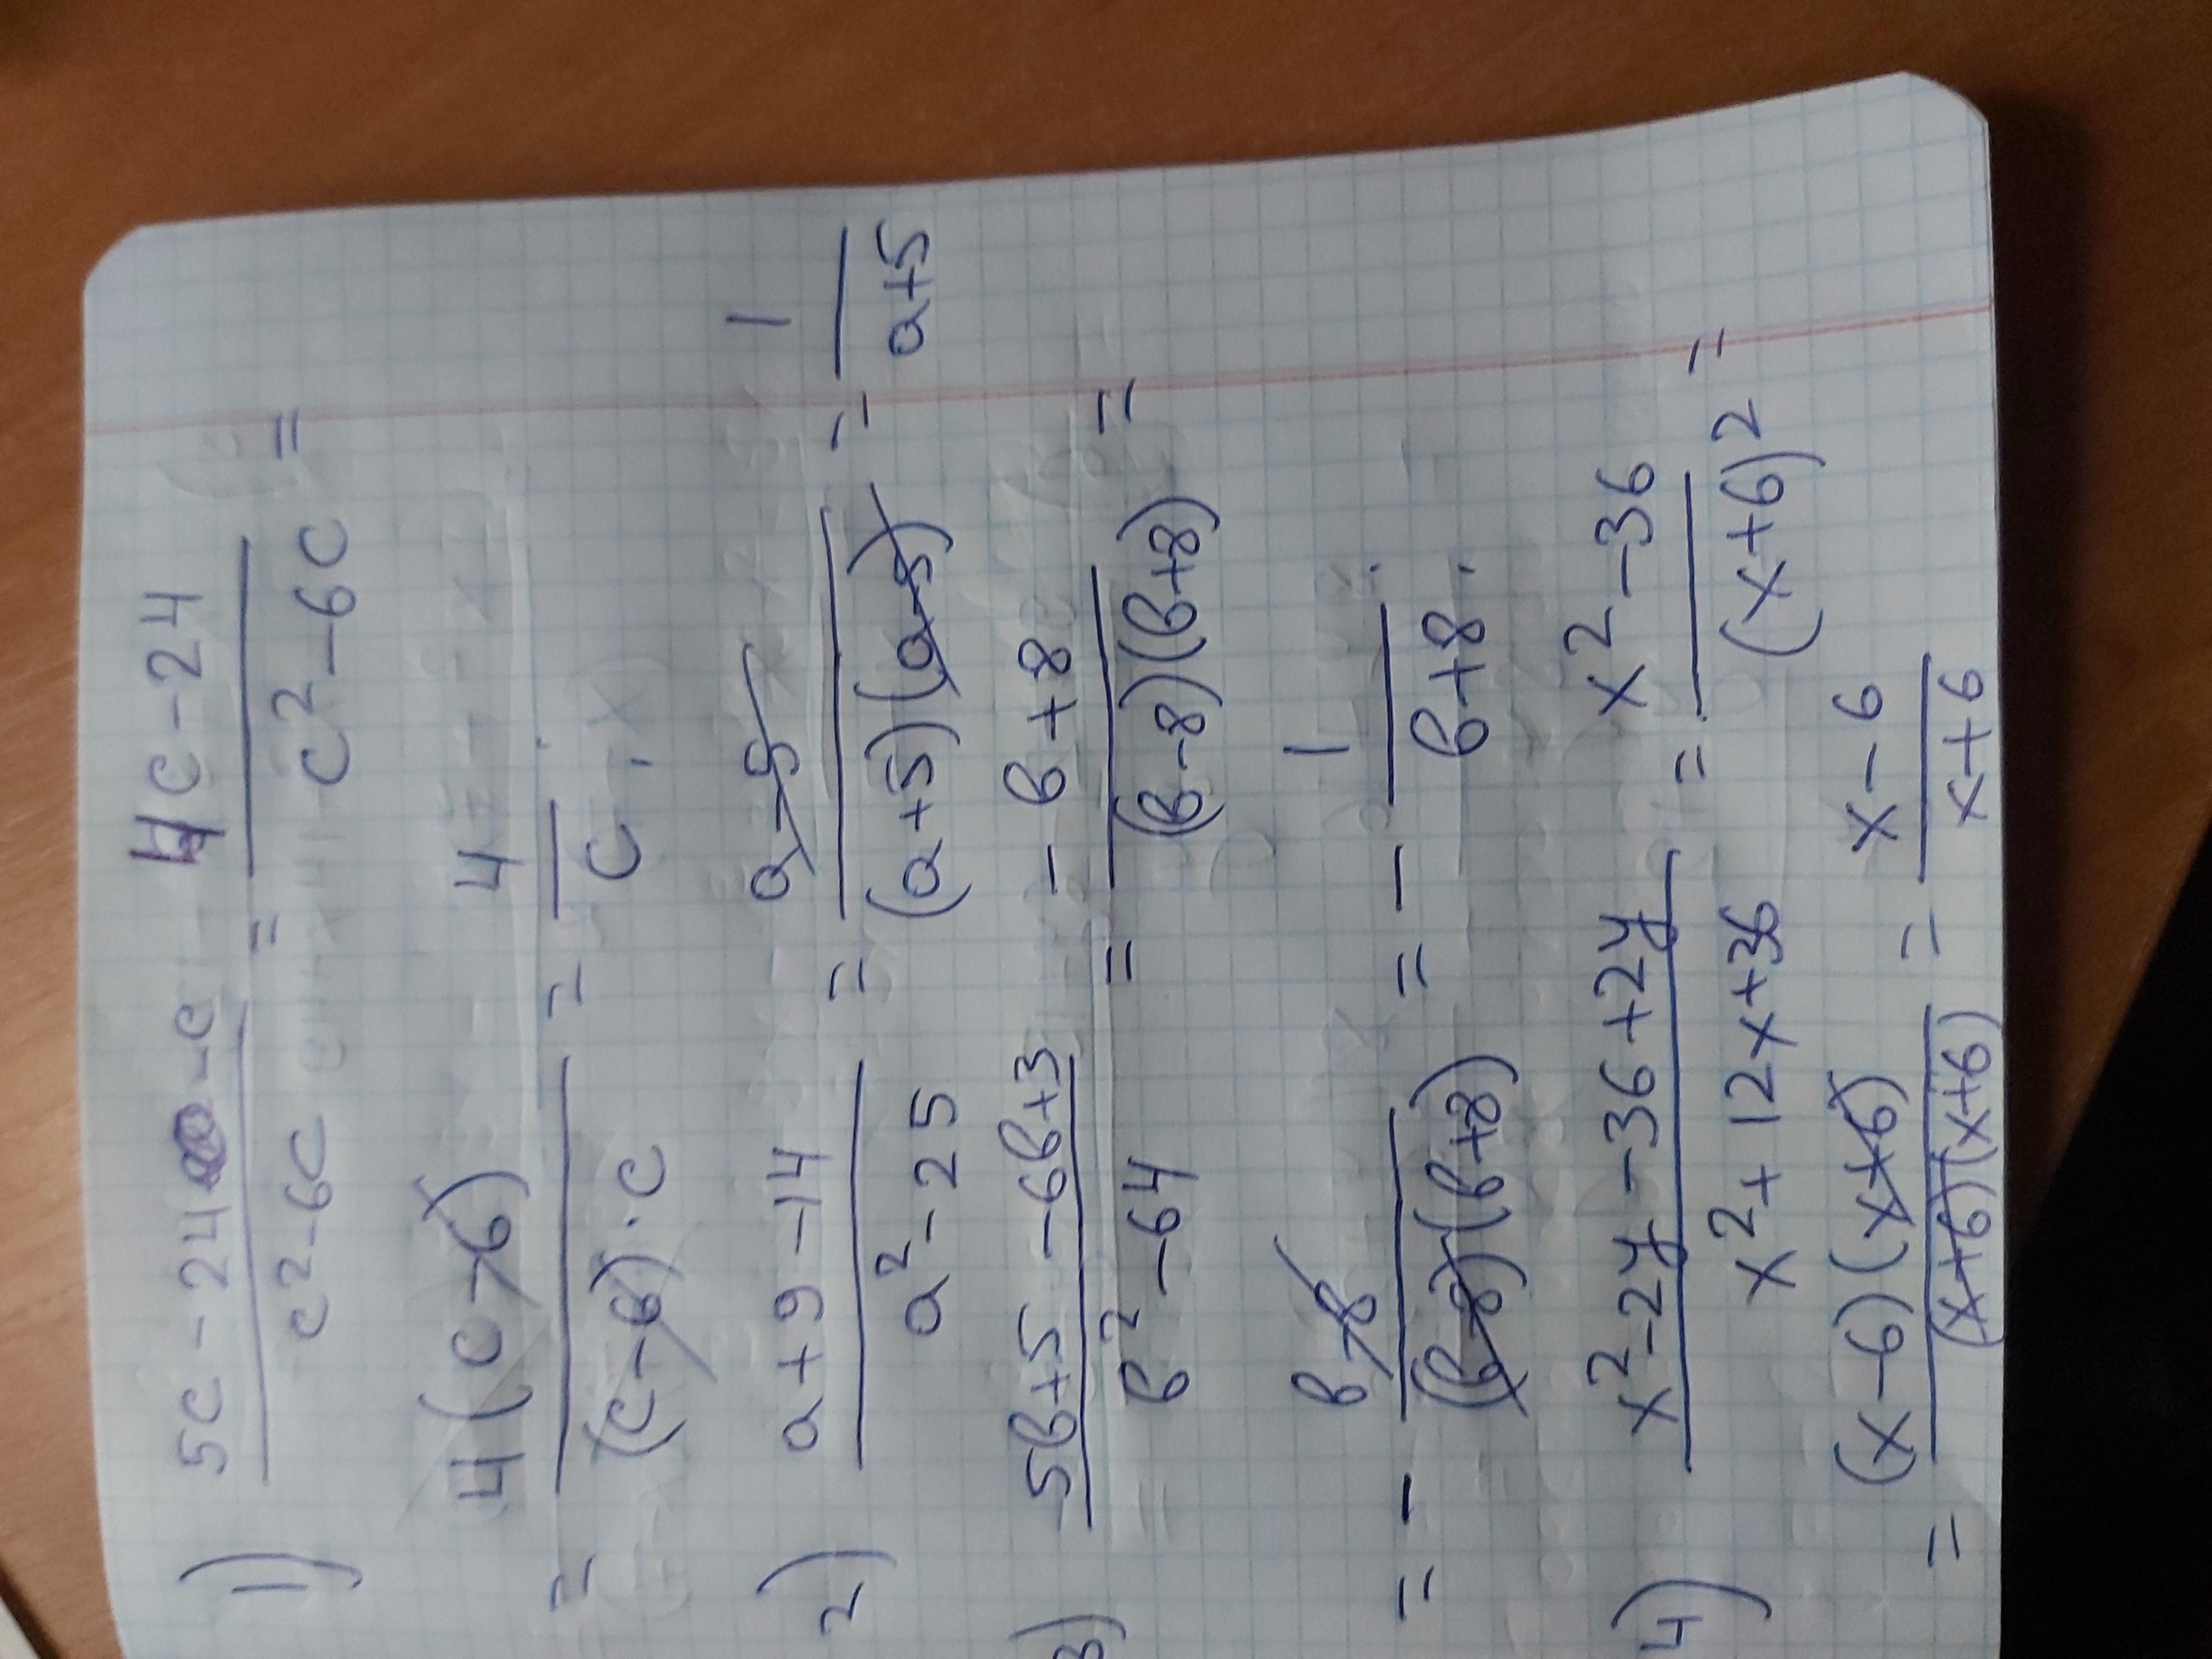 1) (5c - 24 - c)/(c² - 6c) = (4c - 24)/(c² - 6c) =
= (4(c - 6))/((c - 6) · c) = 4/c.
2) (a + 9 - 14)/(a² - 25) = (a - 5)/((a + 5)(a - 5)) = 1/(a + 5)
3) (5в + 5 - 6в + 3)/(в² - 64) = (-в + 8)/((в - 8)(в + 8)) =
= - (в - 8)/((в - 8)(в + 8)) = - 1/(в + 8).
4) (x² - 2y - 36 + 2y)/(x² + 12x + 36) = (x² - 36)/((x + 6)²) =
= ((x - 6)(x + 6))/((x + 6)(x + 6)) = (x - 6)/(x + 6)